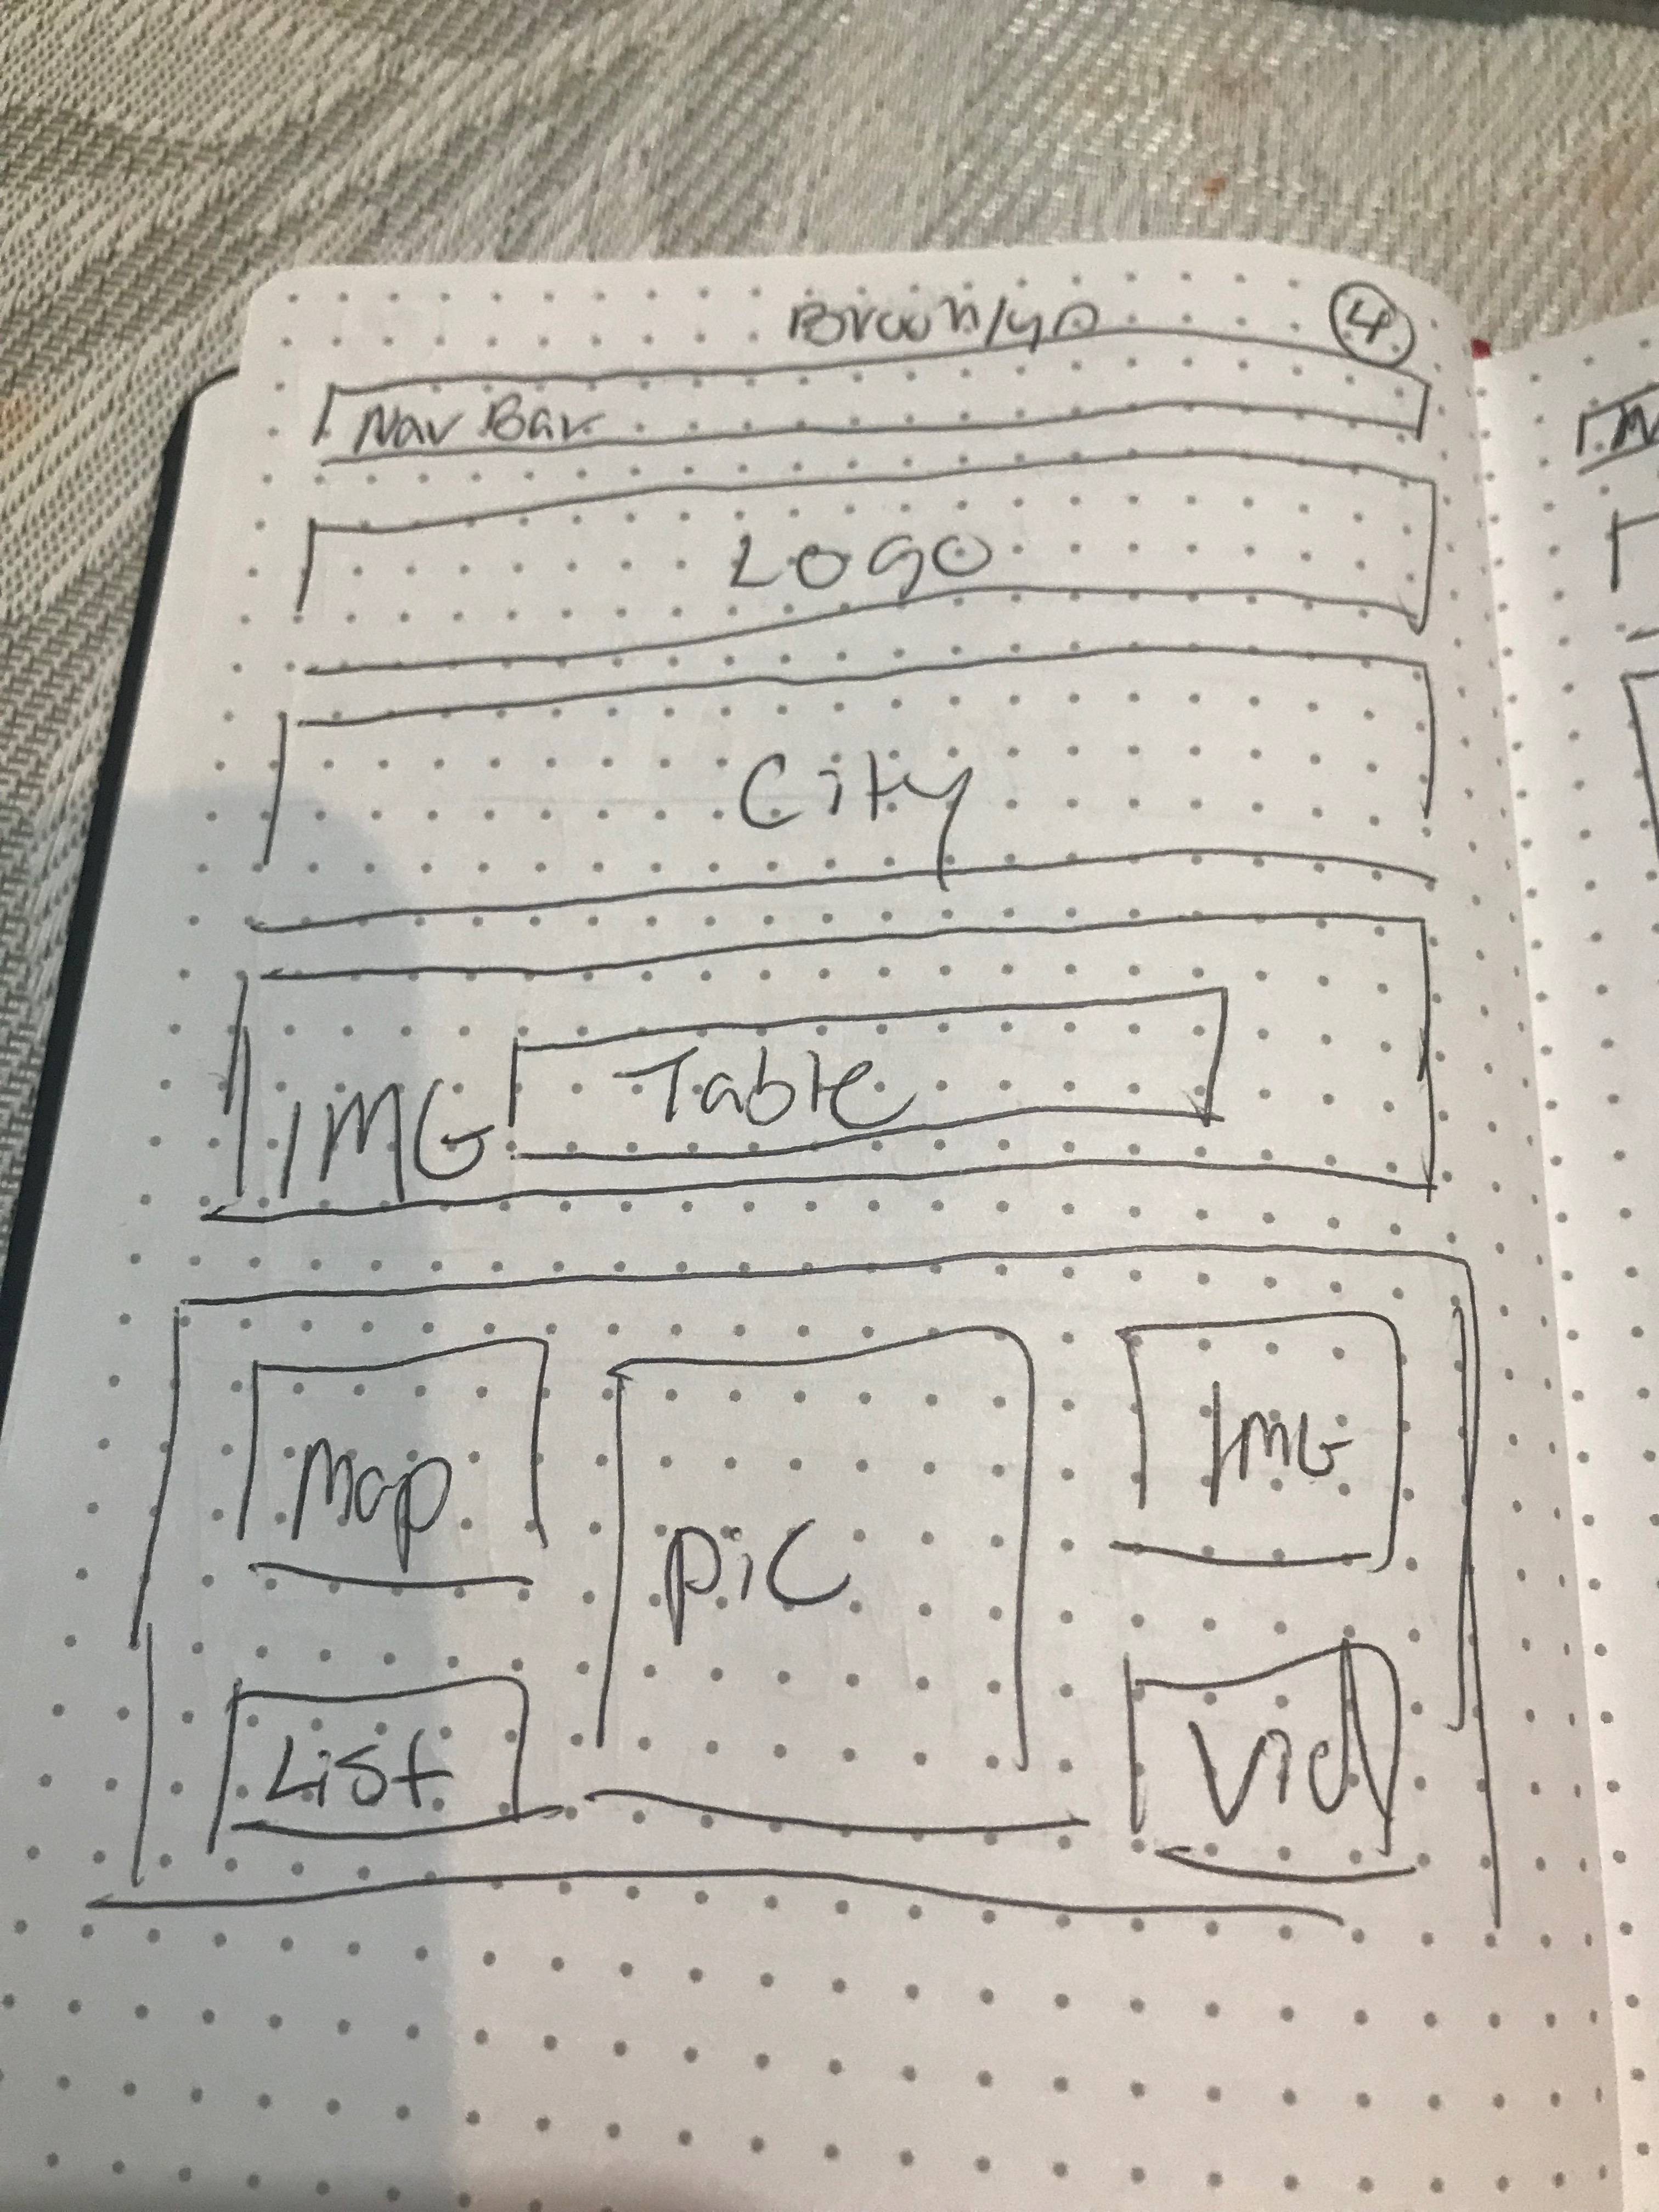 Brooklyn 4
Nav Bar
Logo
City
IMG Table
Map Pic IMG
List Vid